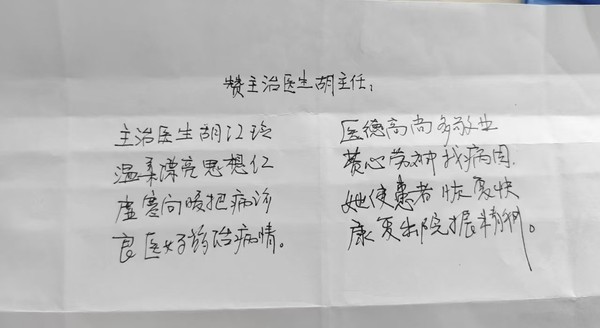 赞主治医生胡主任：
主治医生胡江玲
温柔漂亮思想仁
虚寒向暖把病诊
良医好药治病情。
医德高尚多敬业
费心劳神找病因.
她使患者恢复快
康复出院振精神。